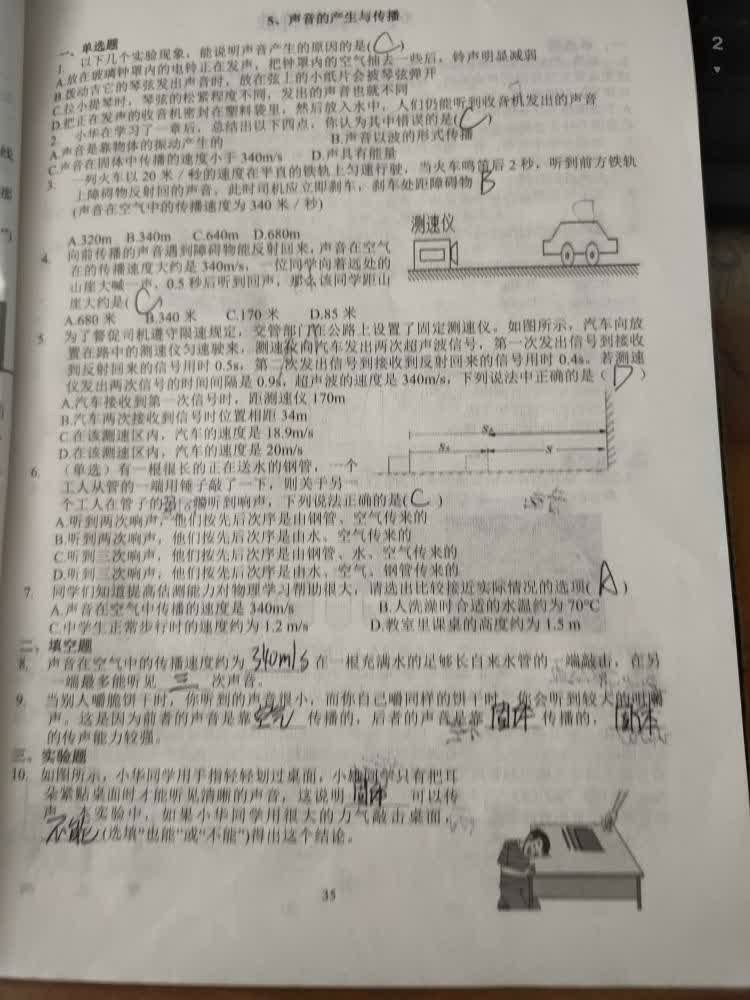 5、声音的产生与传播
一、单选题
1. 以下几个实验现象，能说明声音产生的原因的是(C)
A.放在玻璃钟罩内的电铃正在发声，把钟罩内的空气抽去一些后，铃声明显减弱
B.拨动吉它的琴弦发出声音时，放在弦上的小纸片会被琴弦弹开
C.拉小提琴时，琴弦的松紧程度不同，发出的声音也就不同
D.把正在发声的收音机密封在塑料袋里，然后放入水中，人们仍能听到收音机发出的声音
2. 小华在学习了一章后，总结出以下四点，你认为其中错误的是(C)
A.声音是靠物体的振动产生的 B.声音以波的形式传播
C.声音在固体中传播的速度小于 340m/s D.声具有能量
3. 一列火车以 20 米／秒的速度在平直的铁轨上匀速行驶，当火车鸣笛后 2 秒，听到前方铁轨
上障碍物反射回的声音，此时司机应立即刹车，刹车处距障碍物 B
(声音在空气中的传播速度为 340 米／秒)
A.320m B.340m C.640m D.680m
测速仪
4. 向前传播的声音遇到障碍物能反射回来，声音在空气
在的传播速度大约是 340m/s，一位同学向着远处的
山崖大喊一声，0.5 秒后听到回声，那么该同学距山
崖大约是(C
A.680 米 B.340 米 C.170 米 D.85 米
5 为了督促司机遵守限速规定，交管部门在公路上设置了固定测速仪。如图所示，汽车向放
置在路中的测速仪匀速驶来，测速仪向汽车发出两次超声波信号，第一次发出信号到接收
到反射回来的信号用时 0.5s，第二次发出信号到接收到反射回来的信号用时 0.4s。若测速
仪发出两次信号的时间间隔是 0.9s，超声波的速度是 340m/s，下列说法中正确的是（D）
A.汽车接收到第一次信号时，距测速仪 170m
B.汽车两次接收到信号时位置相距 34m
C.在该测速区内，汽车的速度是 18.9m/s
D.在该测速区内，汽车的速度是 20m/s
6. （单选）有一根很长的正在送水的钢管，一个
工人从管的一端用锤子敲了一下，则关于另一
个工人在管子的另一端听到响声，下列说法正确的是(C)
A.听到两次响声，他们按先后次序是由钢管、空气传来的
B.听到两次响声，他们按先后次序是由水、空气传来的
C.听到三次响声，他们按先后次序是由钢管、水、空气传来的
D.听到三次响声，他们按先后次序是由水、空气、钢管传来的
7. 同学们知道提高估测能力对物理学习帮助很大，请选出比较接近实际情况的选项(A)
A.声音在空气中传播的速度是 340m/s B.人洗澡时合适的水温约为 70℃
C.中学生正常步行时的速度约为 1.2 m/s D.教室里课桌的高度约为 1.5 m
二、填空题
8. 声音在空气中的传播速度约为 340m/s 在一根充满水的足够长自来水管的一端敲击，在另
一端最多能听见 三 次声音。
9. 当别人嚼脆饼干时，你听到的声音很小，而你自己嚼同样的饼干时，你会听到较大的咀嚼
声。这是因为前者的声音是靠 空气 传播的，后者的声音是靠 固体 传播的， 固体
的传声能力较强。
三、实验题
10. 如图所示，小华同学用手指轻轻划过桌面，小雄同学只有把耳
朵紧贴桌面时才能听见清晰的声音，这说明 固体 可以传
声。本实验中，如果小华同学用很大的力气敲击桌面，
不能 (选填"也能"或"不能")得出这个结论。
35
2